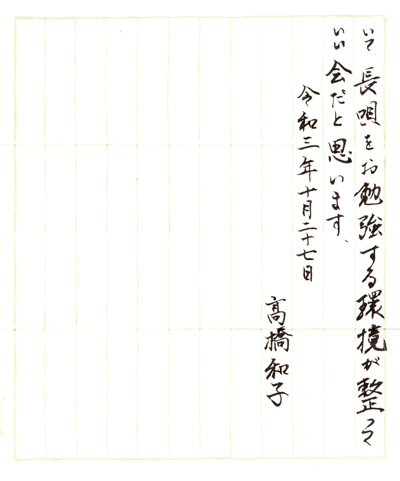 いて、長唄をお勉強する環境が整って
いい会だと思います。
令和三年十月二十七日
高橋和子